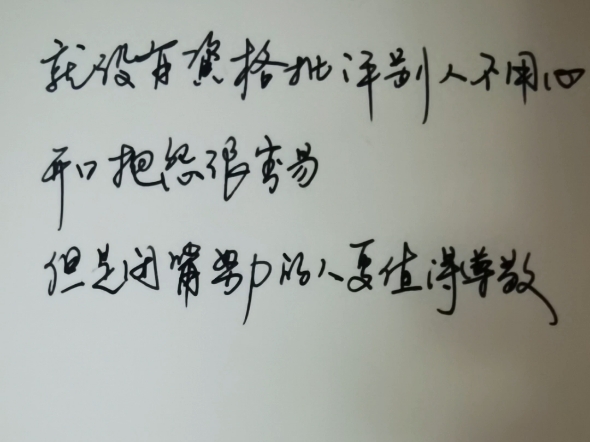 就没有資格批评别人不用心
开口抱怨很容易
但是闭嘴努力的人更值得尊敬